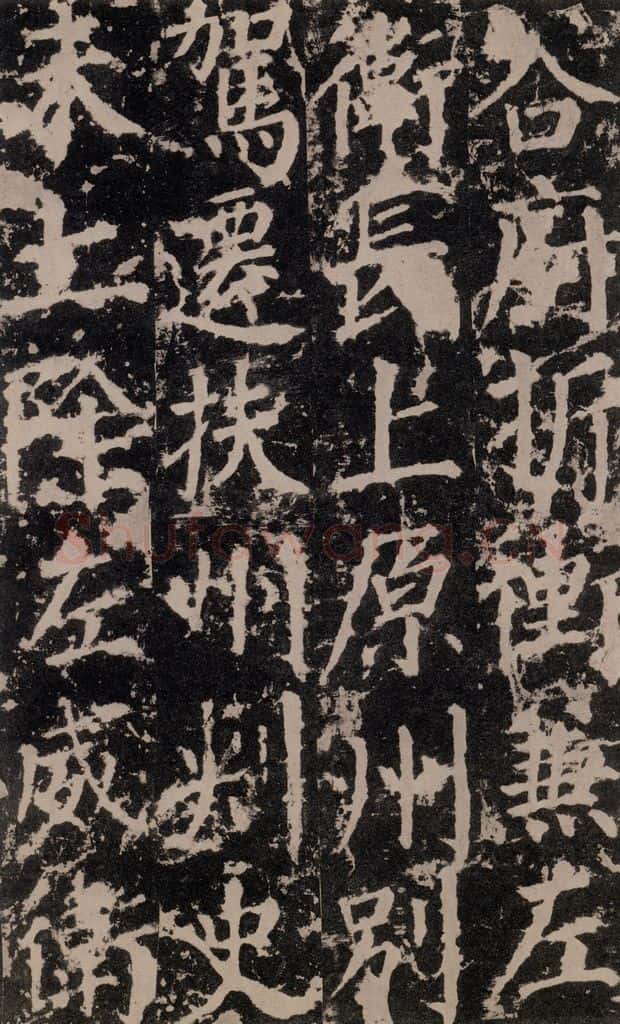 合府折衝兼左
衛長上原州別
駕遷扶州刺史
未上除左威衛
Shufawang.CN